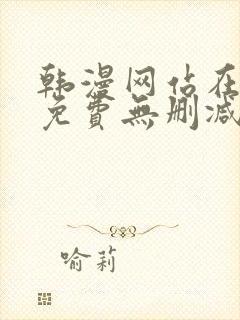 韩漫网站在
免費無删减
喻莉